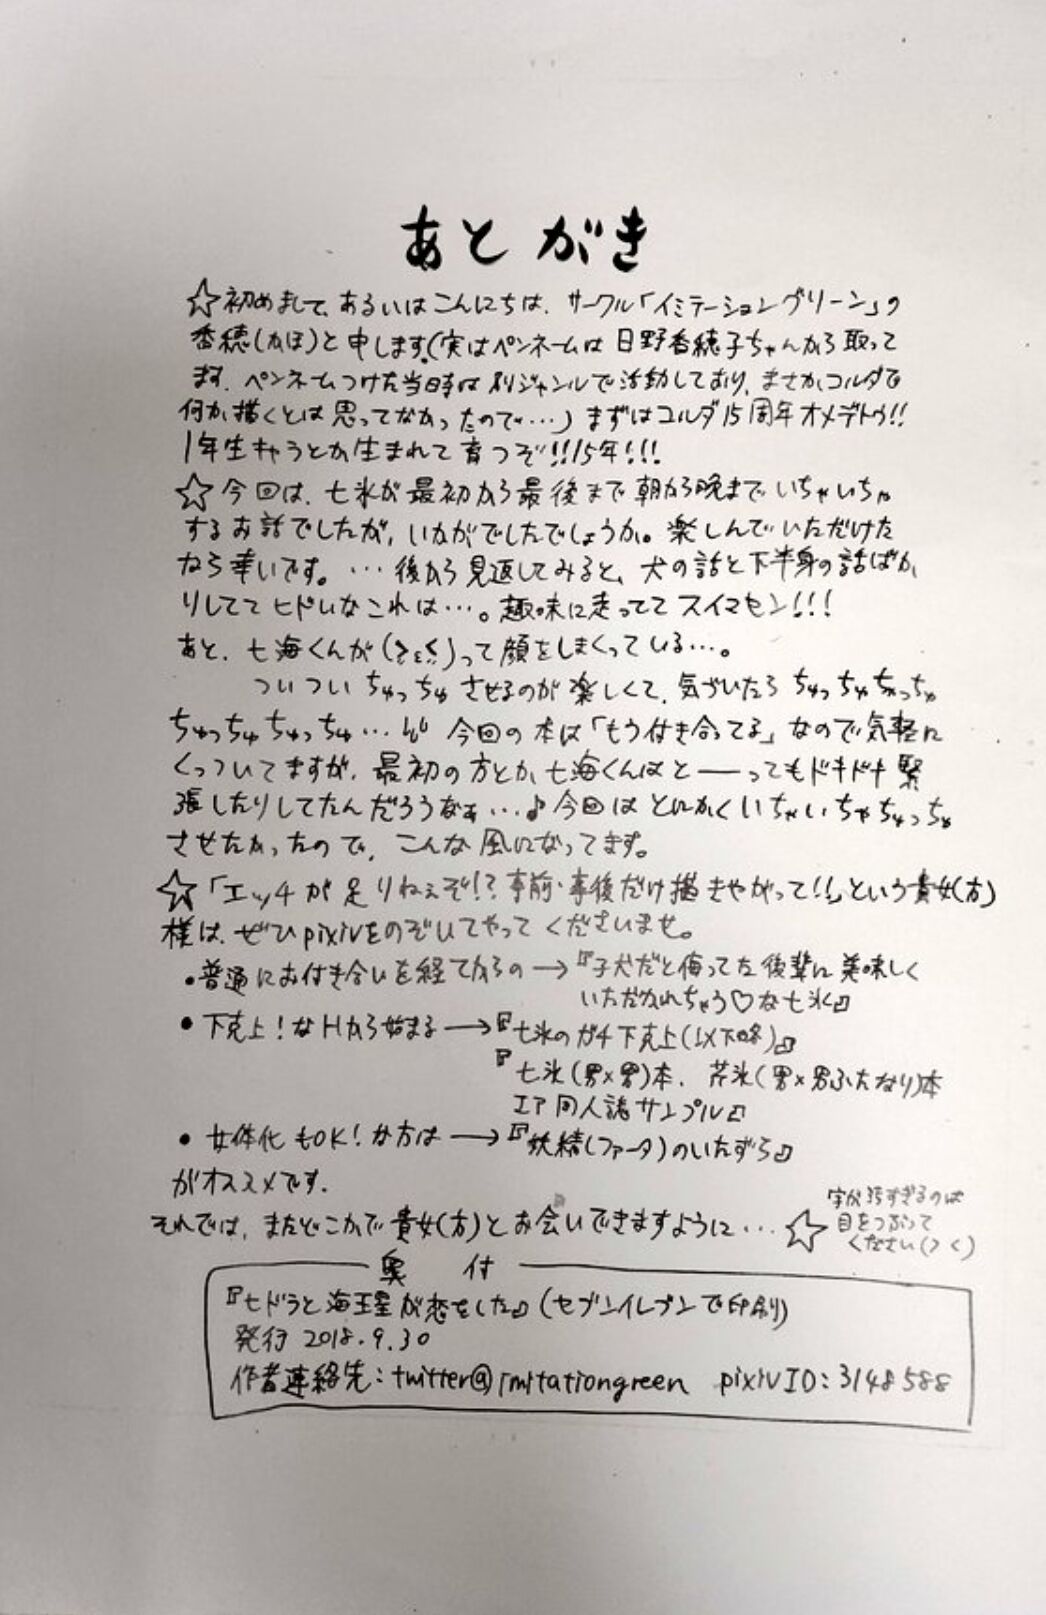 あとがき
☆初めまして、あるいはこんにちは。サークル「イミテーショングリーン」の
香穂(かほ)と申します。(実はペンネームは日野香穂子ちゃんから取って
ます。ペンネームつけた当時は別ジャンルで活動しており、まさかコルダで
何か描くとは思ってなかったので…)まずはコルダ15周年オメデトウ!!
1年生キャラとか生まれて育つぞ!!15年!!!
☆今回は、七氷が最初から最後まで朝から晩までいちゃいちゃ
するお話でしたが、いかがでしたでしょうか。楽しんでいただけた
なら幸いです。…後から見返してみると、犬の話と下半身の話ばか
りしててヒドいなこれは…。趣味に走っててスイマセン!!!
あと、七海くんが(≧ε≦)って顔をしまくっている…。
ついついちゅっちゅさせるのが楽しくて、気づいたらちゅっちゅちゅっちゅ
ちゅっちゅちゅっちゅ… 今回の本は「もう付き合ってる」なので気軽に
くっついてますが、最初の方とか七海くんはと――ってもドキドキ緊
張したりしてたんだろうなぁ…♪今回はとにかくいちゃいちゃちゅっちゅ
させたかったので、こんな風になってます。
☆「エッチが足りねぇぞ!?事前・事後だけ描きやがって!!」という貴女(方)
様は、ぜひpixivをのぞいてやってくださいませ。
•普通にお付き合いを経てからの→『子犬だと侮ってた後輩に美味しく
いただかれちゃう♡な七氷』
•下克上!なHから始まる→『七氷のガチ下克上(以下略)』
『七氷(男×男)本、芹氷(男×男ふたなり)本
エア同人誌サンプル』
•女体化もOK!な方は→『妖精(ファータ)のいたずら』
がオススメです。
それでは、またどこかで貴女(方)とお会いできますように…☆
字が汚すぎるのは
目をつぶって
ください(つく)
奥付
『七ドラと海王星が恋をした』(セブンイレブンで印刷)
発行 2018.9.30
作者連絡先:twitter@imitationgreen pixivID:3148588